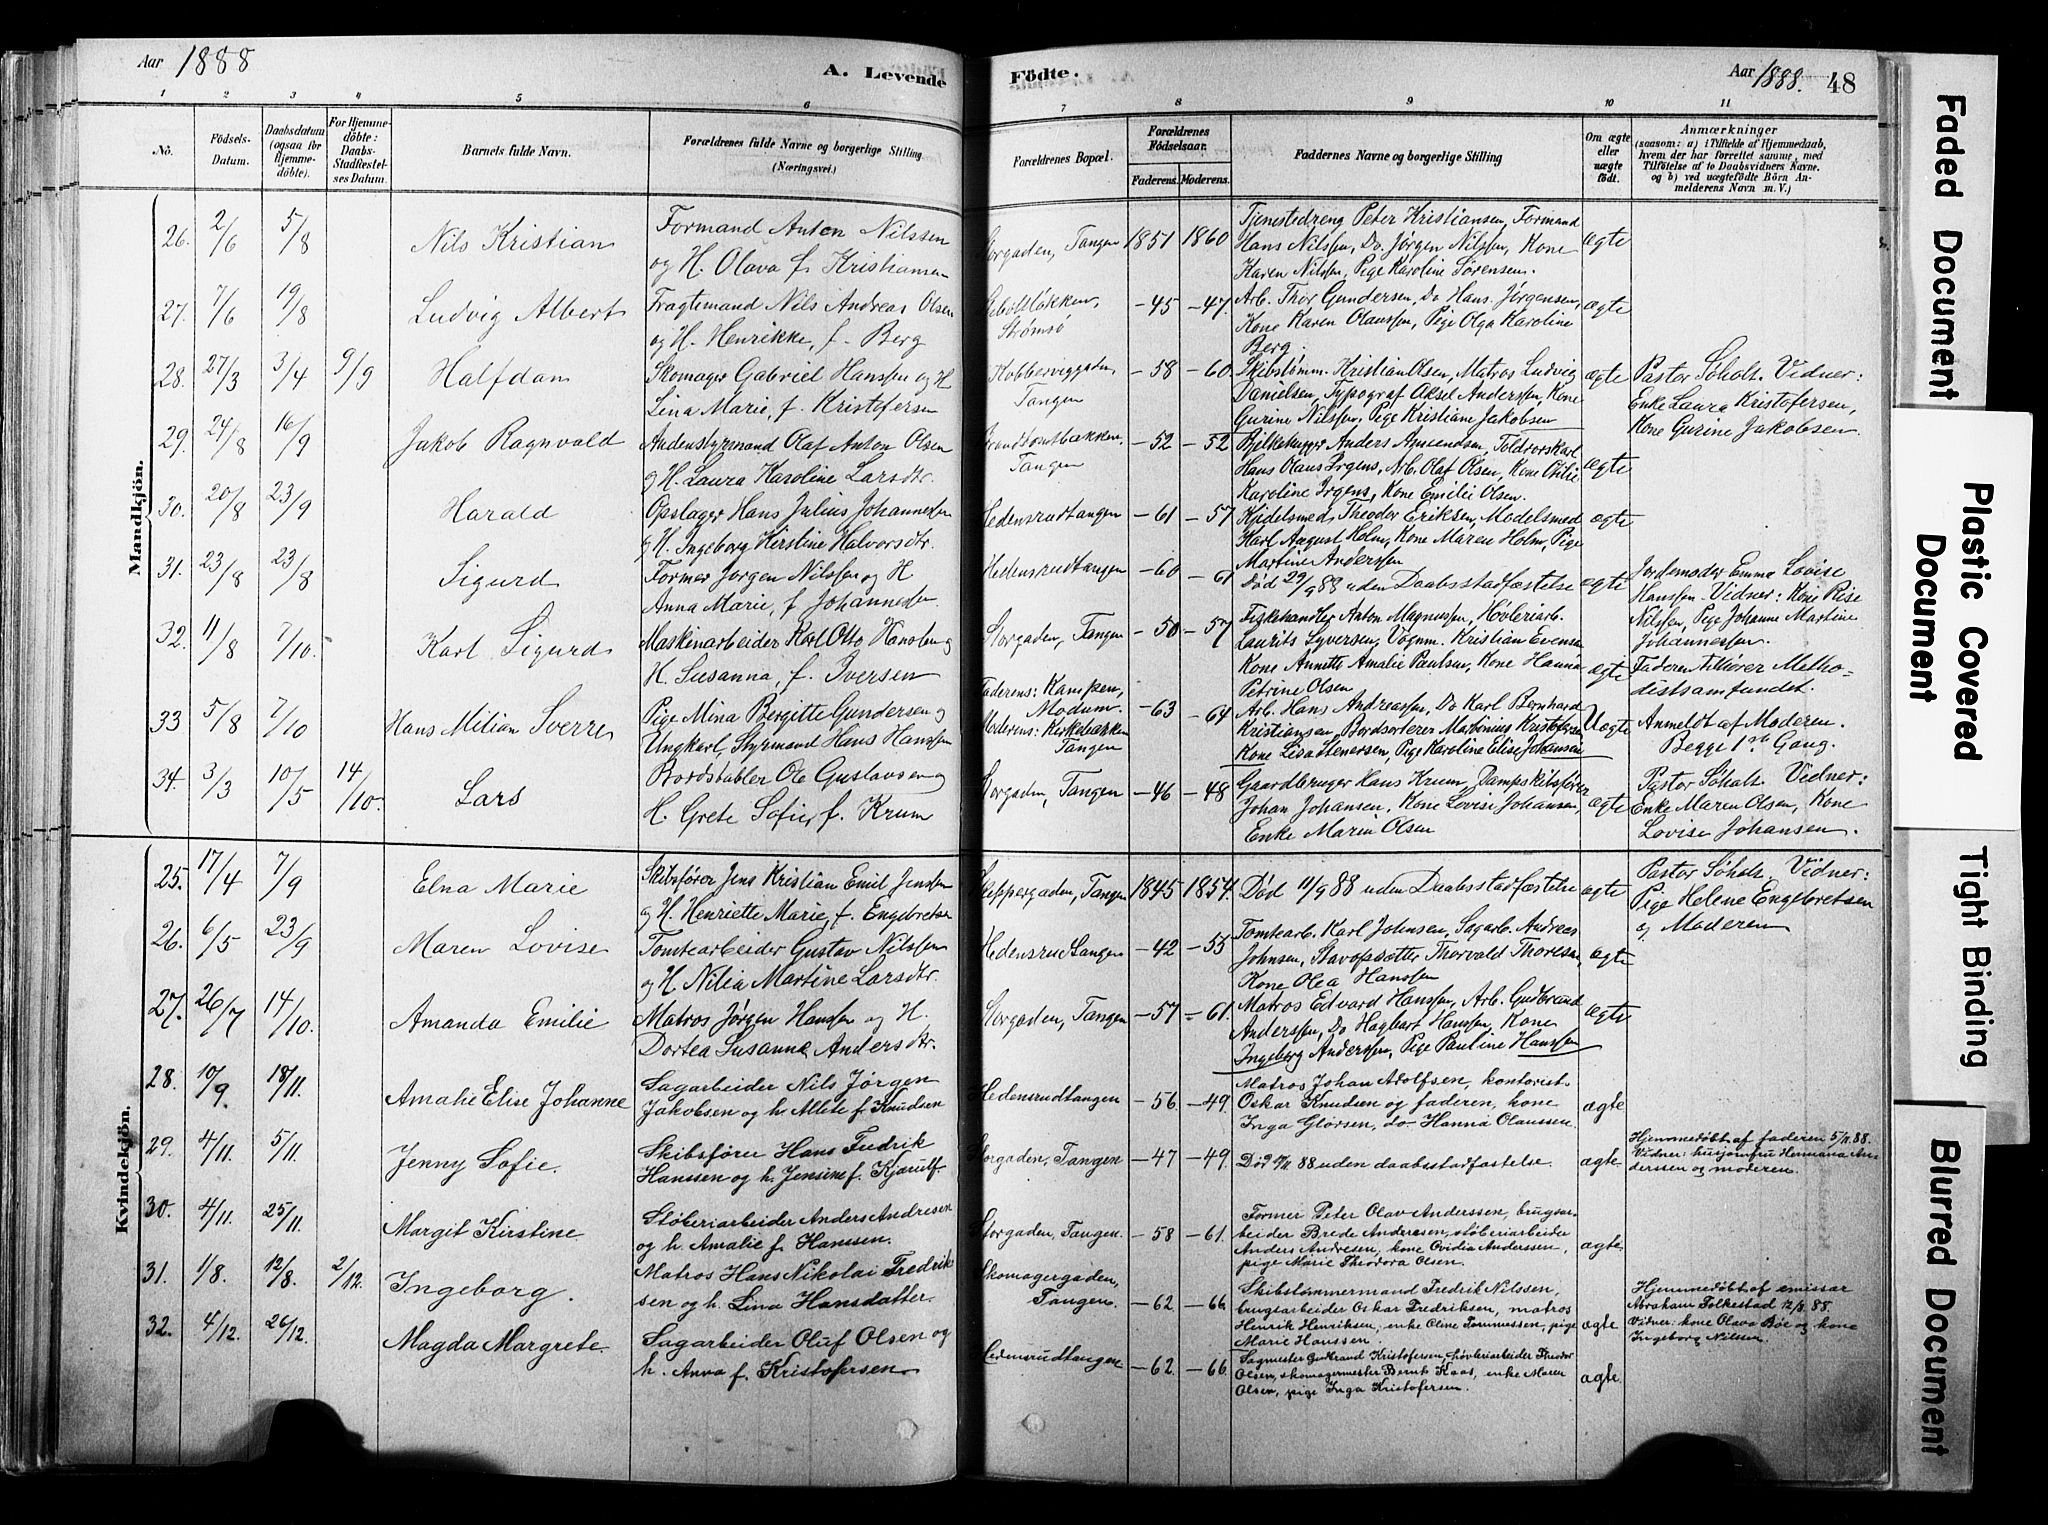 Aar 1888
A. Levende
Födte.
Aar 1888. 48
1 2 3 4 5 6 7 8 9 10 11
No.
Födsels-Datum.
Daabsdatum (ogsaa for Hjemmedöbte).
For Hjemmedöbte: Daabs-Stadfæstelses Datum.
Barnets fulde Navn.
Forældrenes fulde Navne og borgerlige Stilling (Næringsvei.)
Forældrenes Bopæl.
Forældrenes Födselsaar.
Faderens. Moderens.
Faddernes Navne og borgerlige Stilling
Om ægte eller uægte födt.
Anmærkninger
(saasom: a) i Tilfælde af Hjemmedaab, hvem der har forrettet samme, med Tilföielse af to Daabsvidners Navne. og b) ved uægtefödte Börn Anmelderens Navn m. V.)
Mandkjön.
26. 2/6 5/8 Nils Kristian
Formand Anton Nilssen
og H. Olava f. Kristiansen
Storgaden, Tangen 1851 1860
Tjenestedreng Peter Kristiansen, Formand
Hans Nilssen, Do. Jørgen Nilssen, Kone
Karen Nilssen, Pige Karoline Sørensen.
ægte
27. 7/6 19/8 Ludvig Albert
Fragtemand Nils Andreas Olsen
og H. Henrikke, f. Berg
Strømsø -45 -47.
Arb. Thor Gundersen, Do Hans Jørgensen,
Kone Karen Olaussen, Pige Olga Karoline
Berg.
ægte
28. 27/3 3/4 9/9 Halfdan
Skomager Gabriel Hanssen og H
Lina Marie, f. Kristofersen
Kobberviggaden
Tangen -58 -60
Skibstømm. Kristian Olsen, Matros Ludvig
Danielsen, Typograf Aksel Anderssen, Kone
Gurine Nilssen, Pige Kristiane Jakobsen
ægte
Pastor Søholt. Vidner:
Enke Laura Kristofersen,
Kone Gurine Jakobsen.
29. 24/8 16/9 Jakob Ragnvald
Andenstyrmand Olaf Anton Olsen
og H. Laura Karoline Larsdtr.
Tangen -52 -52
Bjelkehugger Anders Amundsen, Toldrorskarl
Hans Olaus Irgens, Arb. Olaf Olsen, Kone Otilie
Karoline Irgens, Kone Emilie Olsen.
ægte
30. 20/8 23/9 Harald
Opslager Hans Julius Johannessen
og H. Ingeborg Kirstine Halvorsdtr.
Hedensrudtangen -61 -57
Kjedelsmed Theodor Eriksen, Modelsmed
Karl August Holm, Kone Maren Holm, Pige
Martine Anderssen
ægte
31. 23/8 23/8 Sigurd
Former Jørgen Nilssen og H
Anna Marie, f. Johannessen.
Hedensrudtangen -60 -61
Død 29/9 88 uden Daabsstadfæstelse
ægte
Jordemoder Emma Lovise
Hanssen. Vidner: Kone Rise
Nilssen, Pige Johanne Martine
Johannessen.
32. 11/8 7/10. Karl Sigurd
Maskinarbeider Karl Otto Hanssen og
H. Susanna, f. Iversen
Storgaden, Tangen -50 -57
Fiskehandler Anton Magnussen, Høvleriarb.
Laurits Syversen, Vognm. Kristian Evensen
Kone Annette Amalie Paulsen, Kone Hanna
Petrine Olsen
ægte
Faderen tilhører Metho-
distsamfundet.
33 5/8 7/10 Hans Milian Sverre
Pige Mina Bergitte Gundersen og
Ungkarl, Styrmand Hans Hanssen
Faderens: Kampen,
Modum.
Moderens: Kirkebakken
Tangen -63 -64
Arb. Hans Andreassen, Do Karl Bernhard
Kristiansen, Bordsorterer Martinius Kristofersen
Kone Lisa Stenersen, Pige Karoline Elise Johansen
Uægte
Anmeldt af Moderen.
Begge 1ste Gang.
34. 3/3 10/5 14/10. Lars
Bordstabler Ole Gustavsen og
H. Grete Sofie, f. Krum
Storgaden, Tangen -46 -48
Gaardbruger Hans Krum, Dampskibsfører
Johan Johansen, Kone Lovise Johansen,
Enke Maren Olsen
ægte
Pastor Søholt. Vidner:
Enke Maren Olsen, Kone
Lovise Johansen.
Kvindekjön.
25. 17/4 7/9 Elna Marie
Skibsfører Jens Kristian Emil Jenssen
og H. Henriette Marie, f. Engebretsen
Skippergaden, Tangen 1845 1854.
Død 11/9 88 uden Daabsstadfæstelse
ægte
Pastor Søholt. Vidner:
Pige Helene Engebretsen
og Moderen
26. 6/5 23/9 Maren Lovise
Tomtearbeider Gustav Nilssen
og H. Nilia Martine Larsdtr.
Hedensrudtangen -42 -55
Tomtearb. Karl Johnsen, Sagarb. Andreas
Johnsen, Stavopsætter Thorvald Thoresen,
Kone Olea Hanssen
ægte
27. 26/7 14/10. Amanda Emilie
Matros Jørgen Hanssen og H.
Dortea Susanne Andersdtr.
Storgaden, Tangen -57 -61.
Matros Edvard Hanssen, Arb. Gudbrand
Anderssen, Do Hagbart Hanssen, Kone
Ingeborg Anderssen, Pige Pauline Hanssen
ægte
28. 10/9. 18/11. Amalie Elise Johanne
Sagarbeider Nils Jørgen
Jakobsen og h. Allete f. Knudsen
Hedensrudtangen -56 -49.
Matros Johan Adolfsen, kontorist
Oskar Knudsen og faderen, kone
Inga Glørsen, do Hanna Olaussen.
ægte.
29. 4/11. 5/11. Jenny Sofie.
Skibsfører Hans Fredrik
Hanssen og h. Jensine f. Kjærulf.
Storgaden, Tangen -47 -49.
uden daabsstadfæstelse.
ægte
Hjemmedøbt af faderen 5/11. 88.
Vidner: husjomfru Hermana An-
derssen og moderen.
30. 4/11. 25/11. Margit Kirstine
Støberiarbeider Anders Andresen
og h. Amalie f. Hanssen.
Storgaden, Tangen. -58 -61.
Former Peter Olav Anderssen, brugsar-
beider Brede Andersen, støberiarbeider
Anders Andresen, kone Ovidia Anderssen,
pige Marie Theodora Olsen.
ægte.
31. 1/8. 12/8. 2/12. Ingeborg.
Matros Hans Nikolai Fredrik-
sen og h. Lina Hansdatter.
Skomagergaden,
Tangen. -62 -66.
Skibstømmermand Fredrik Nilssen,
brugsarbeider Oskar Fredriksen, matros
Henrik Henriksen, enke Oline Tommessen, pige
Marie Hanssen.
ægte
Hjemmedøbt af emissær
Abraham Folkestad 12/8. 88.
Vidner: kone Olava Bøe og kone
Ingeborg Nilsen.
32. 4/12. 26/12. Magda Margrete.
Sagarbeider Oluf Olsen og
h. Anna f. Kristofersen
Hedensrudtangen -62 -66.
Sagmester Gudbrand Kristofersen, høvleriarbeider Theodor
Olsen, skomagermester Bernt Kaas, enke Maren
Olsen, pige Inga Kristofersen.
ægte.
Faded Document
Plastic Covered Document
Tight Binding
Blurred Document